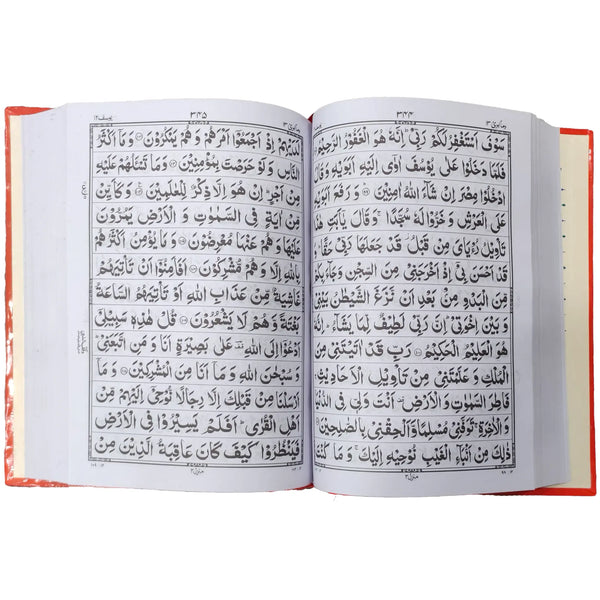 ۳۴۴
سَوْفَ اَسْتَغْفِرُ لَكُمْ رَبِّیْ اِنَّهٗ هُوَ الْغَفُوْرُ الرَّحِیْمُ
فَلَمَّا دَخَلُوْا عَلٰی یُوْسُفَ اٰوٰۤی اِلَیْهِ اَبَوَیْهِ وَ قَالَ
ادْخُلُوْا مِصْرَ اِنْ شَآءَ اللّٰهُ اٰمِنِیْنَ وَ رَفَعَ اَبَوَیْهِ
عَلَی الْعَرْشِ وَ خَرُّوْا لَهٗ سُجَّدًا وَ قَالَ یٰۤاَبَتِ هٰذَا
تَاْوِیْلُ رُءْیَایَ مِنْ قَبْلُ قَدْ جَعَلَهَا رَبِّیْ حَقًّا وَ
قَدْ اَحْسَنَ بِیْۤ اِذْ اَخْرَجَنِیْ مِنَ السِّجْنِ وَ جَآءَ بِكُمْ
مِّنَ الْبَدْوِ مِنْۢ بَعْدِ اَنْ نَّزَغَ الشَّیْطٰنُ بَیْنِیْ
وَ بَیْنَ اِخْوَتِیْ اِنَّ رَبِّیْ لَطِیْفٌ لِّمَا یَشَآءُ اِنَّهٗ
هُوَ الْعَلِیْمُ الْحَكِیْمُ رَبِّ قَدْ اٰتَیْتَنِیْ مِنَ
الْمُلْكِ وَ عَلَّمْتَنِیْ مِنْ تَاْوِیْلِ الْاَحَادِیْثِ
فَاطِرَ السَّمٰوٰتِ وَ الْاَرْضِ اَنْتَ وَلِیّٖ فِی الدُّنْیَا
وَ الْاٰخِرَةِ تَوَفَّنِیْ مُسْلِمًا وَّ اَلْحِقْنِیْ بِالصّٰلِحِیْنَ
ذٰلِكَ مِنْ اَنْۢبَآءِ الْغَیْبِ نُوْحِیْهِ اِلَیْكَ وَ مَا كُنْتَ
منزل ۳
۳۴۵
یوسف ۱۲
لَدَیْهِمْ اِذْ اَجْمَعُوْۤا اَمْرَهُمْ وَ هُمْ یَمْكُرُوْنَ وَ مَاۤ اَكْثَرُ
النَّاسِ وَ لَوْ حَرَصْتَ بِمُؤْمِنِیْنَ وَ مَا تَسْـَٔلُهُمْ عَلَیْهِ
مِنْ اَجْرٍ اِنْ هُوَ اِلَّا ذِكْرٌ لِّلْعٰلَمِیْنَ وَ كَاَیِّنْ
مِّنْ اٰیَةٍ فِی السَّمٰوٰتِ وَ الْاَرْضِ یَمُرُّوْنَ
عَلَیْهَا وَ هُمْ عَنْهَا مُعْرِضُوْنَ وَ مَا یُؤْمِنُ اَكْثَرُهُمْ
بِاللّٰهِ اِلَّا وَ هُمْ مُّشْرِكُوْنَ اَفَاَمِنُوْۤا اَنْ تَاْتِیَهُمْ
غَاشِیَةٌ مِّنْ عَذَابِ اللّٰهِ اَوْ تَاْتِیَهُمُ السَّاعَةُ
بَغْتَةً وَّ هُمْ لَا یَشْعُرُوْنَ قُلْ هٰذِهٖ سَبِیْلِیْۤ
اَدْعُوْۤا اِلَی اللّٰهِ عَلٰی بَصِیْرَةٍ اَنَا وَ مَنِ اتَّبَعَنِیْ
وَ سُبْحٰنَ اللّٰهِ وَ مَاۤ اَنَا مِنَ الْمُشْرِكِیْنَ وَ مَاۤ
اَرْسَلْنَا مِنْ قَبْلِكَ اِلَّا رِجَالًا نُّوْحِیْۤ اِلَیْهِمْ مِّنْ
اَهْلِ الْقُرٰی اَفَلَمْ یَسِیْرُوْا فِی الْاَرْضِ
فَیَنْظُرُوْا كَیْفَ كَانَ عَاقِبَةُ الَّذِیْنَ مِنْ
منزل ۳